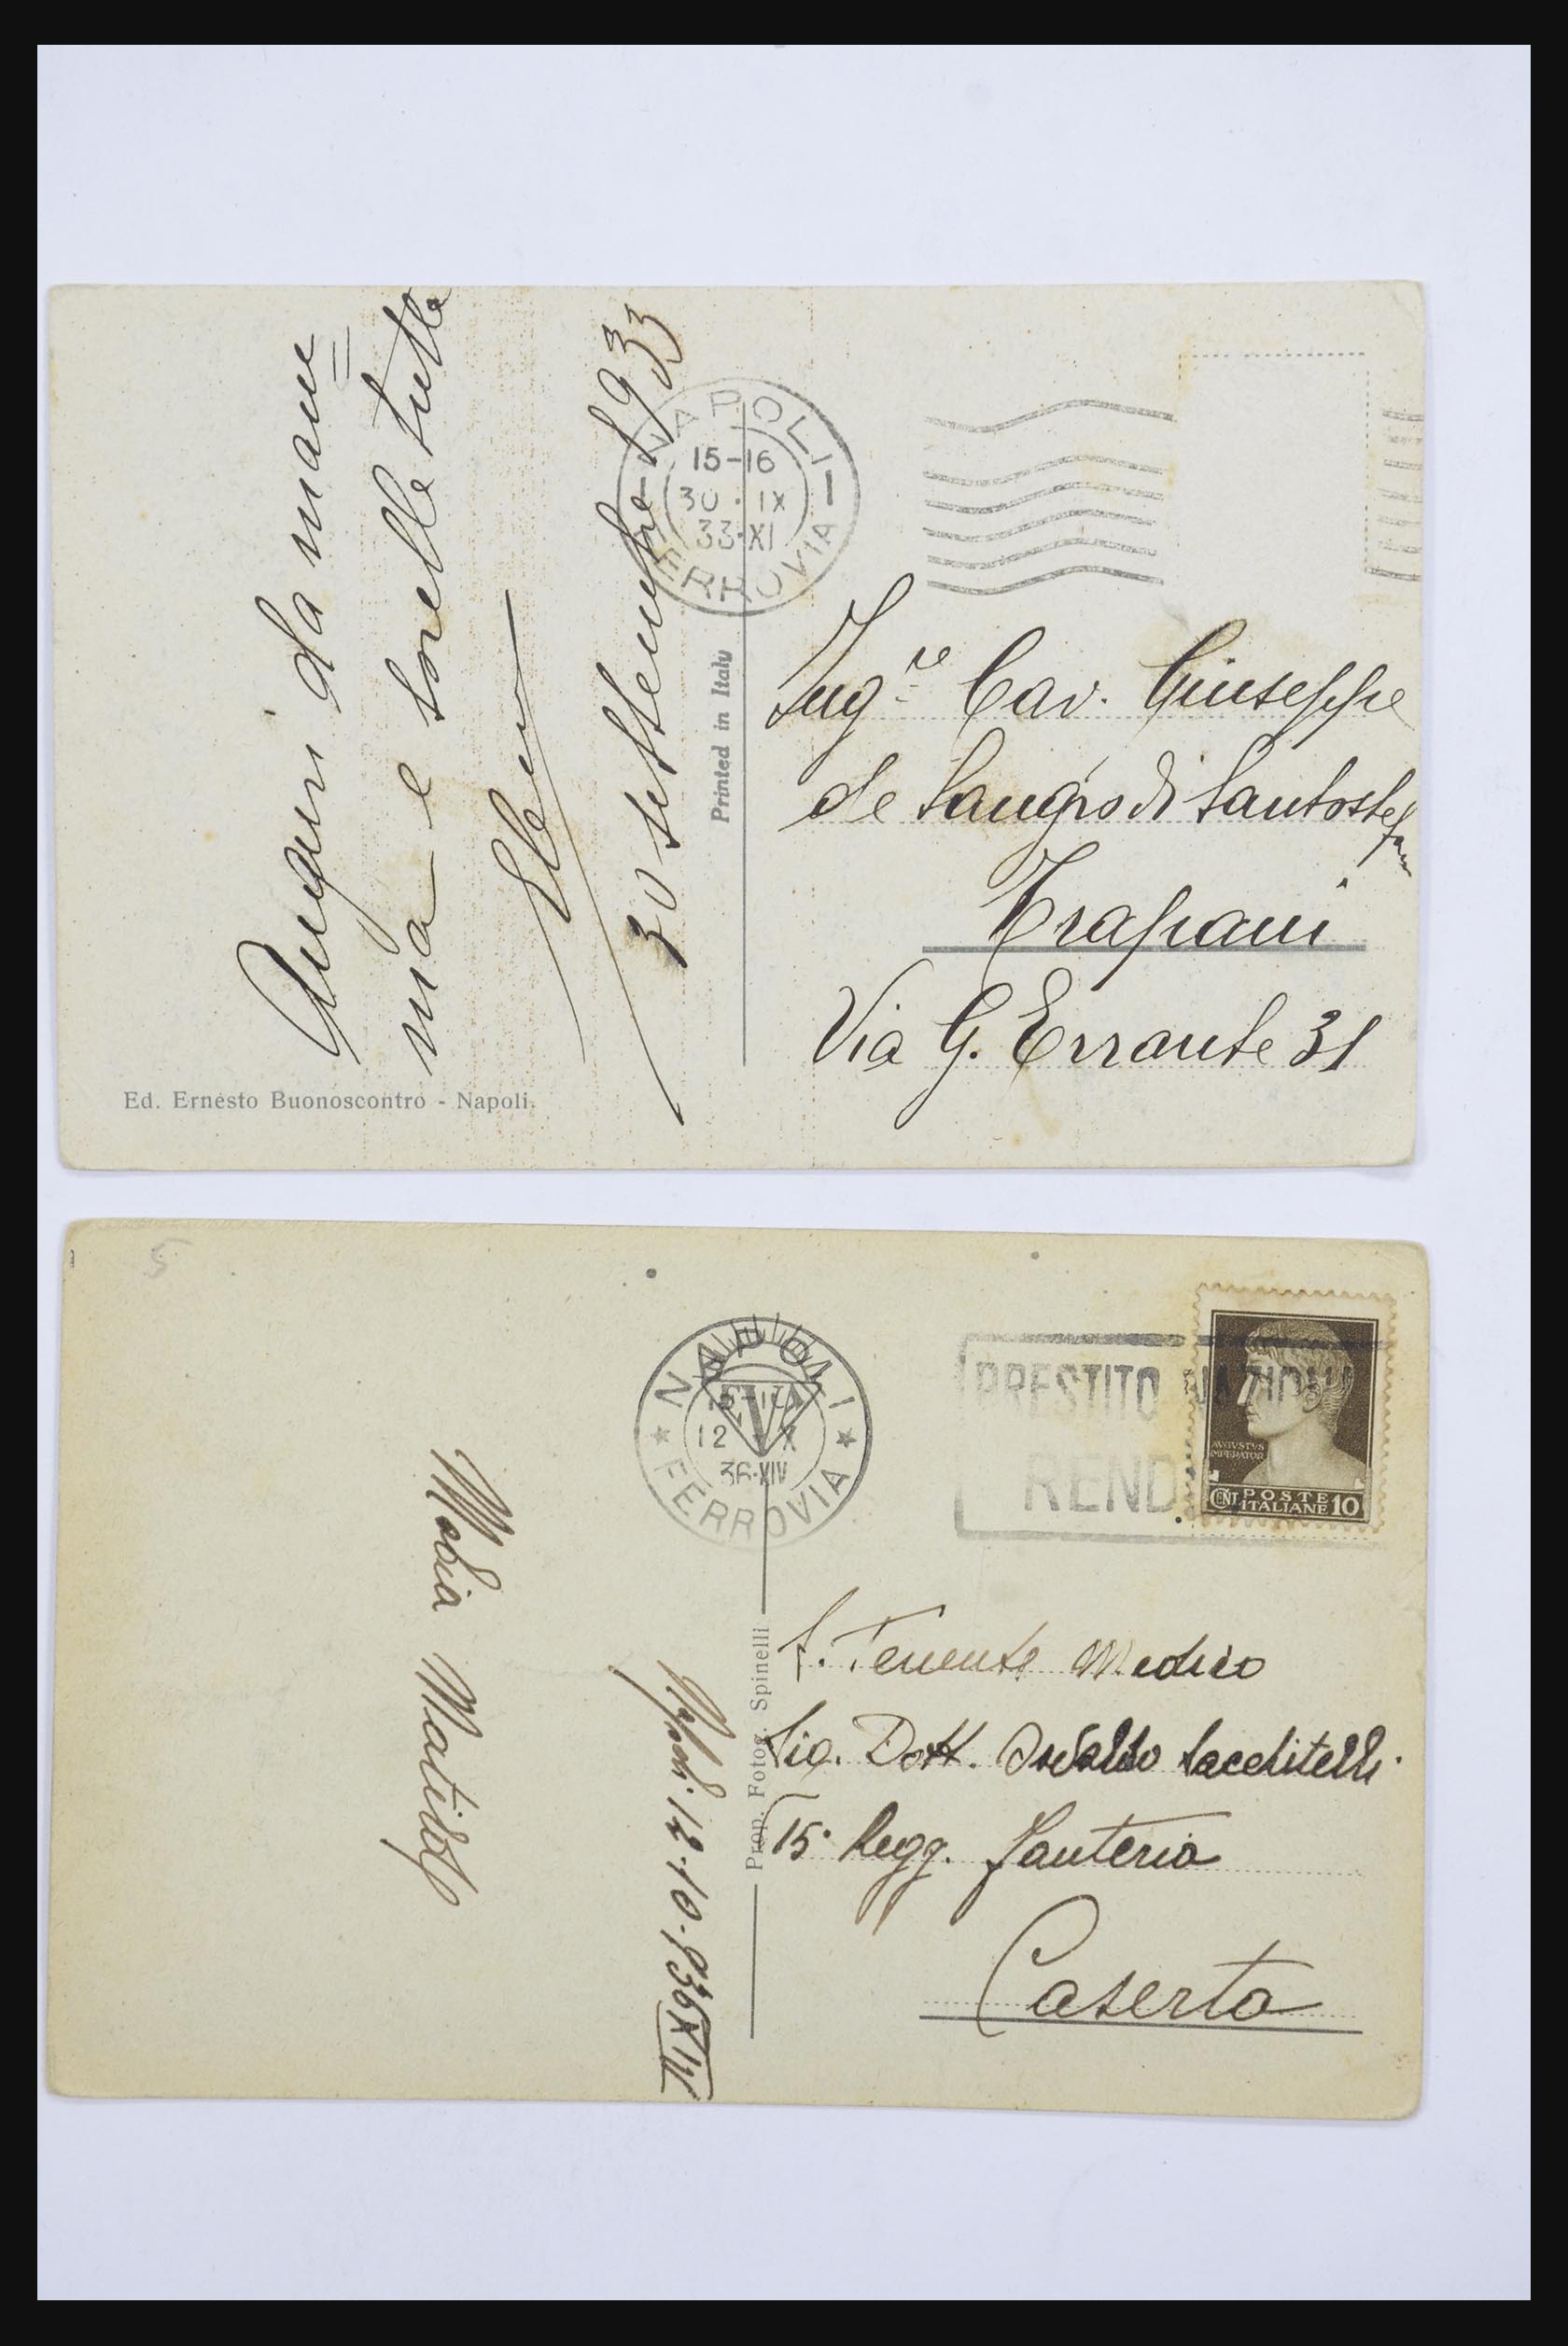 Auguri da mam=
ma e sorelle tutte
Elena
30 settembre 1933
Ed. Ernesto Buonoscontro - Napoli.
Printed in Italy
NAPOLI
15-16
30 · IX
33·XI
FERROVIA
Ing.re Cav. Giuseppe
de Sangro di Santostefano
Trapani
Via G. Errante 31
5
Maria Matilde
Napoli 12-10-936 XIV
Prop. Fotog. Spinelli
NAPOLI
12 X
36·XIV
FERROVIA
PRESTITO NAZIONA
REND
AVGVSTVS
IMPERATOR
CENT. POSTE ITALIANE 10
S. Tenente Medico
Sig. Dott. Osvaldo Sacchitelli.
15° Regg. Fanteria
Caserta